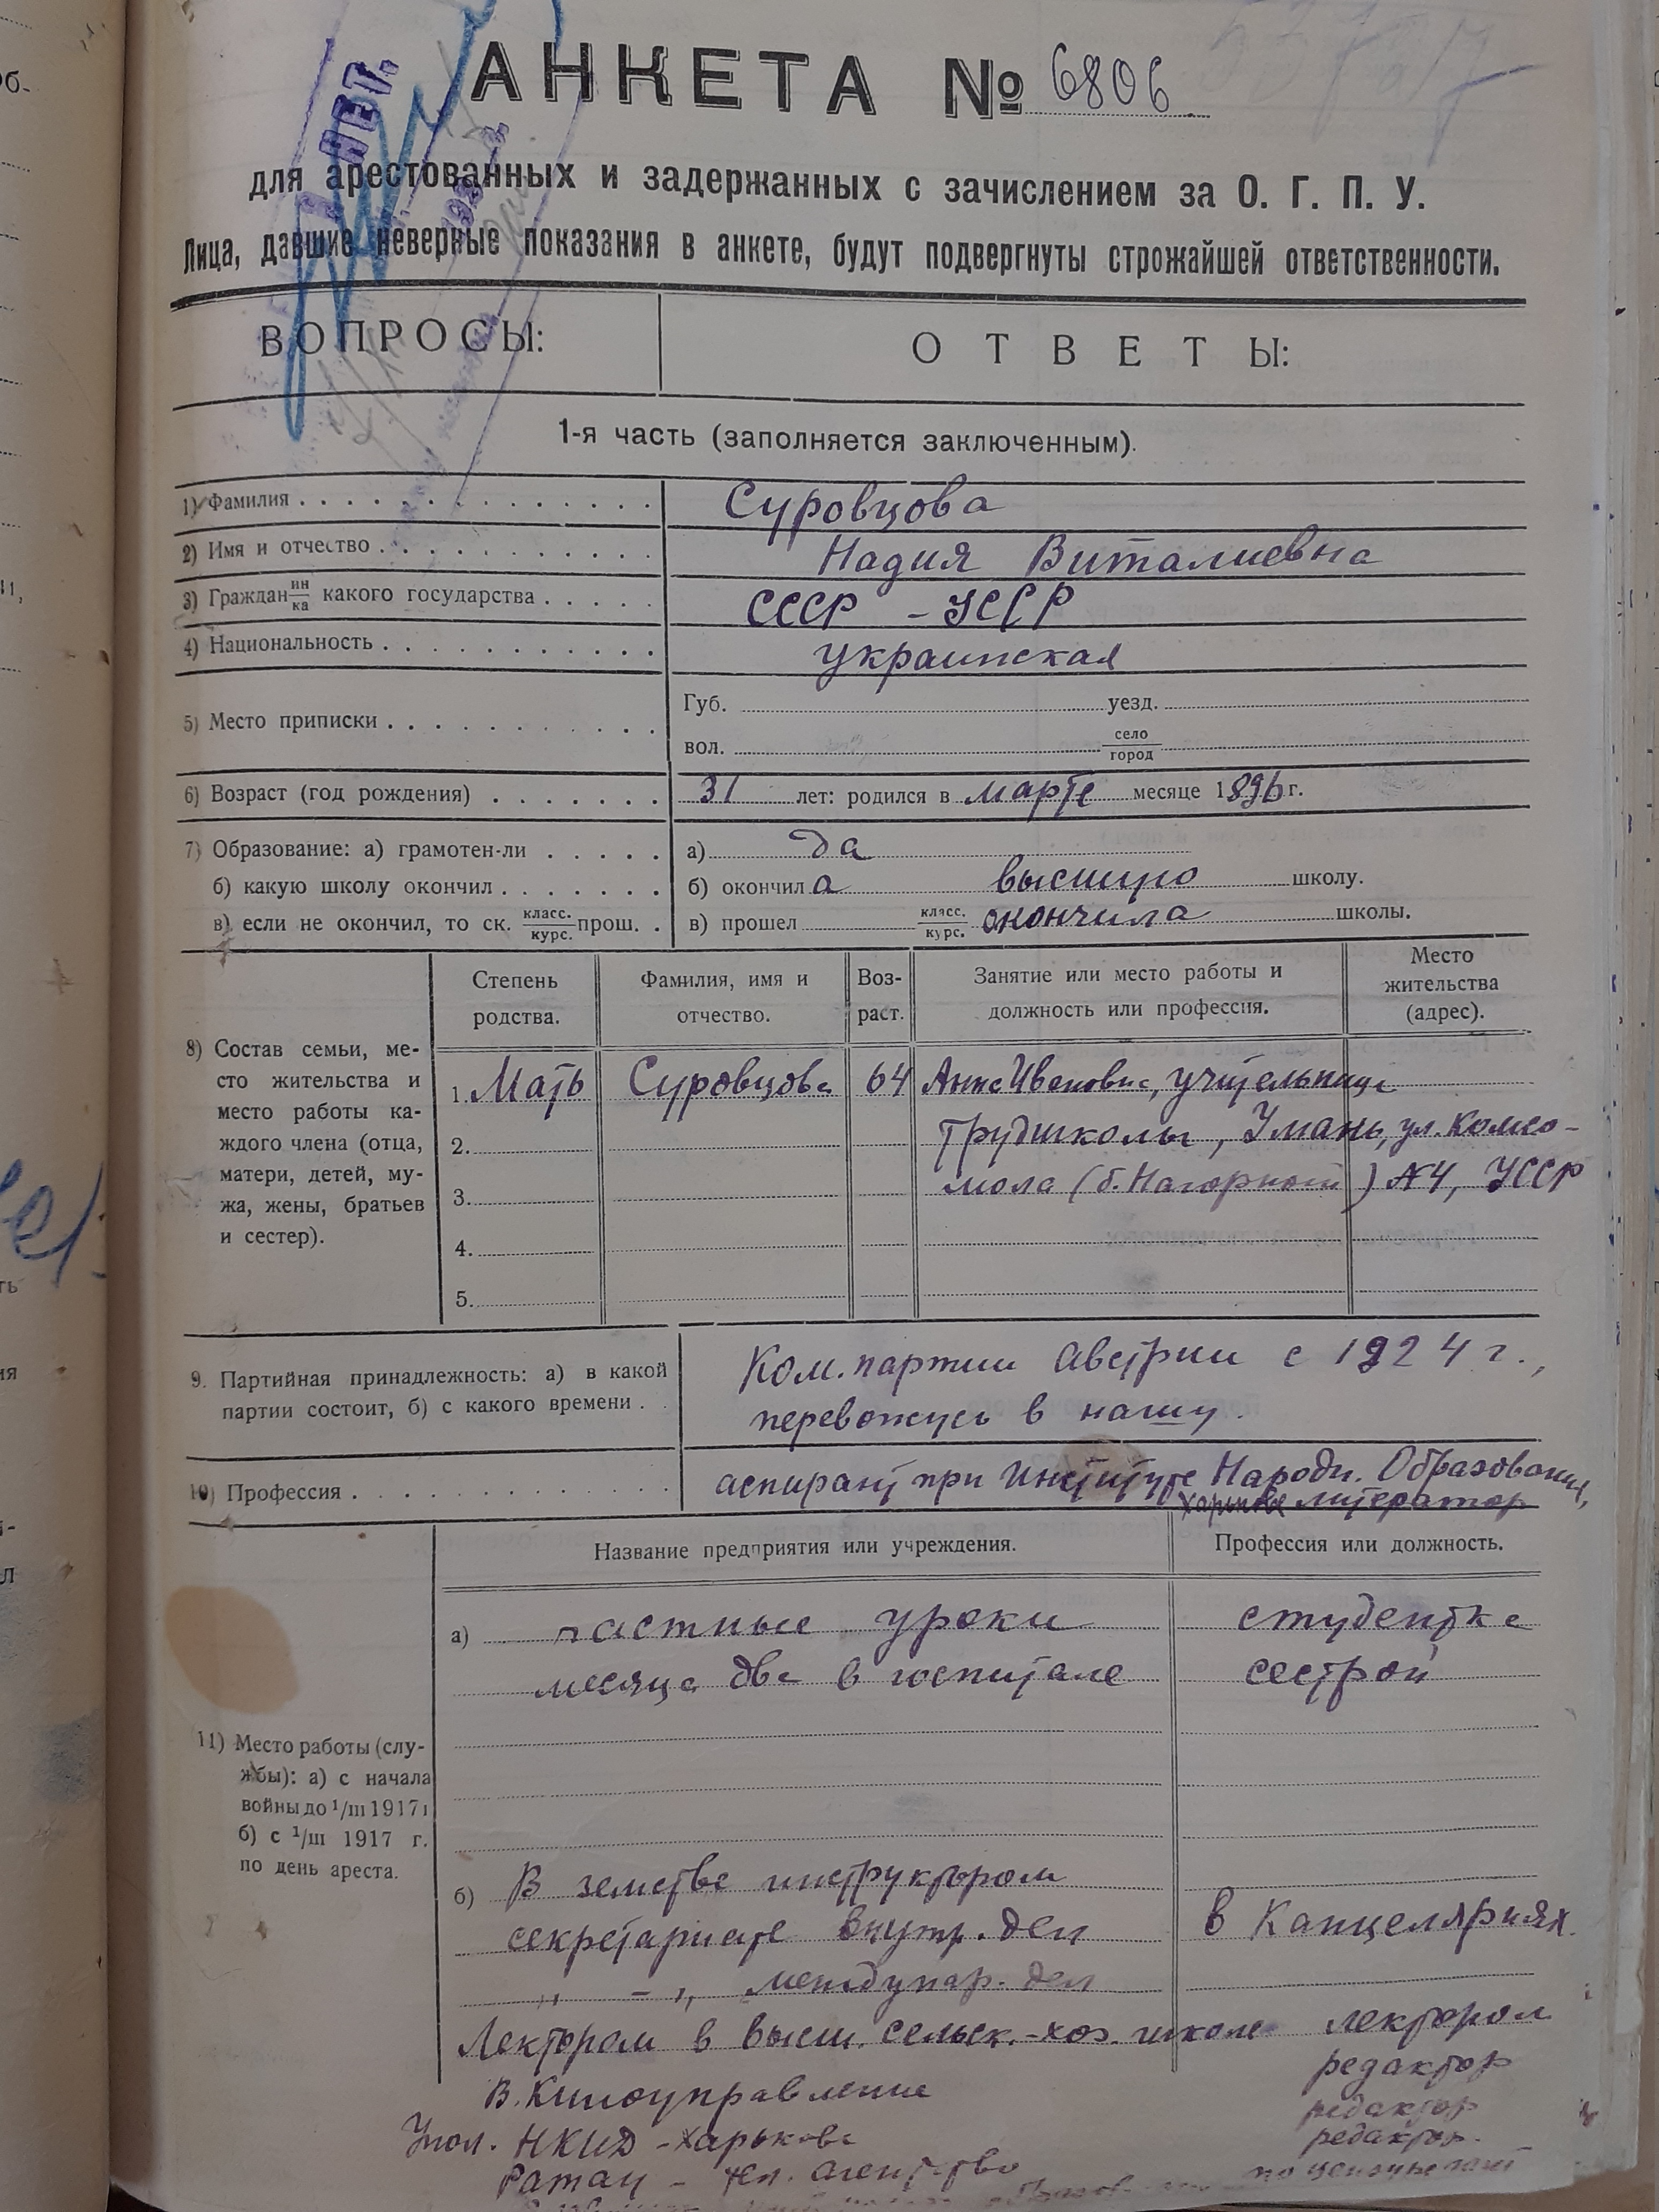 АНКЕТА № 6806
для арестованных и задержанных с зачислением за О. Г. П. У.
Лица, давшие неверные показания в анкете, будут подвергнуты строжайшей ответственности.
ВОПРОСЫ: ОТВЕТЫ:
1-я часть (заполняется заключенным).
1) Фамилия . . . Суровцова
2) Имя и отчество . . . Надия Виталиевна
3) Граждан ин/ка какого государства . . . СССР – УССР
4) Национальность . . . украинская
5) Место приписки . . . Губ. уезд.
вол. село/город
6) Возраст (год рождения) . . . 31 лет: родился в марте месяце 1896 г.
7) Образование: а) грамотен-ли . . . а) да
б) какую школу окончил . . . б) окончила высшую школу.
в) если не окончил, то ск. класс./курс. прош. . в) прошел класс./курс. окончила школы.
Степень родства. Фамилия, имя и отчество. Воз-раст. Занятие или место работы и должность или профессия. Место жительства (адрес).
8) Состав семьи, ме-
сто жительства и
место работы ка-
ждого члена (отца,
матери, детей, му-
жа, жены, братьев
и сестер).
1. Мать Суровцова 64 Анна Ивановна, учительница
2. трудшколы, Умань, ул. Комсо-
3. мола (б. Нагорной) №4, УССР
4.
5.
9. Партийная принадлежность: а) в какой
партии состоит, б) с какого времени . .
Ком. партии Австрии с 1924 г.,
перевожусь в нашу.
10) Профессия . . . аспирант при Институте Народн. Образования,
Харьков литератор
Название предприятия или учреждения. Профессия или должность.
11) Место работы (слу-
жбы): а) с начала
войны до 1/III 1917 г
б) с 1/III 1917 г.
по день ареста.
а) частные уроки студентка
месяца два в госпитале сестрой
б) В земстве инструктором
секретариате внутр. дел в Канцеляриях.
„ – „ междунар. дел
Лектором в высш. сельск.-хоз. школе лектором
В. Киноуправлении редактор
Упол. НКИД – Харькове редактор
Ратау – тел. агентство редактор.